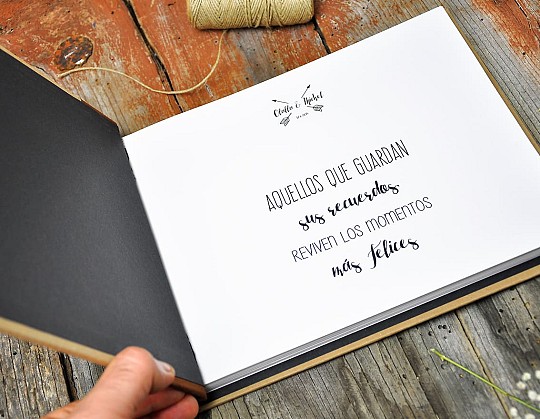 Olalla & Mikel
AQUELLOS QUE GUARDAN
sus recuerdos
REVIVEN LOS MOMENTOS
más felices